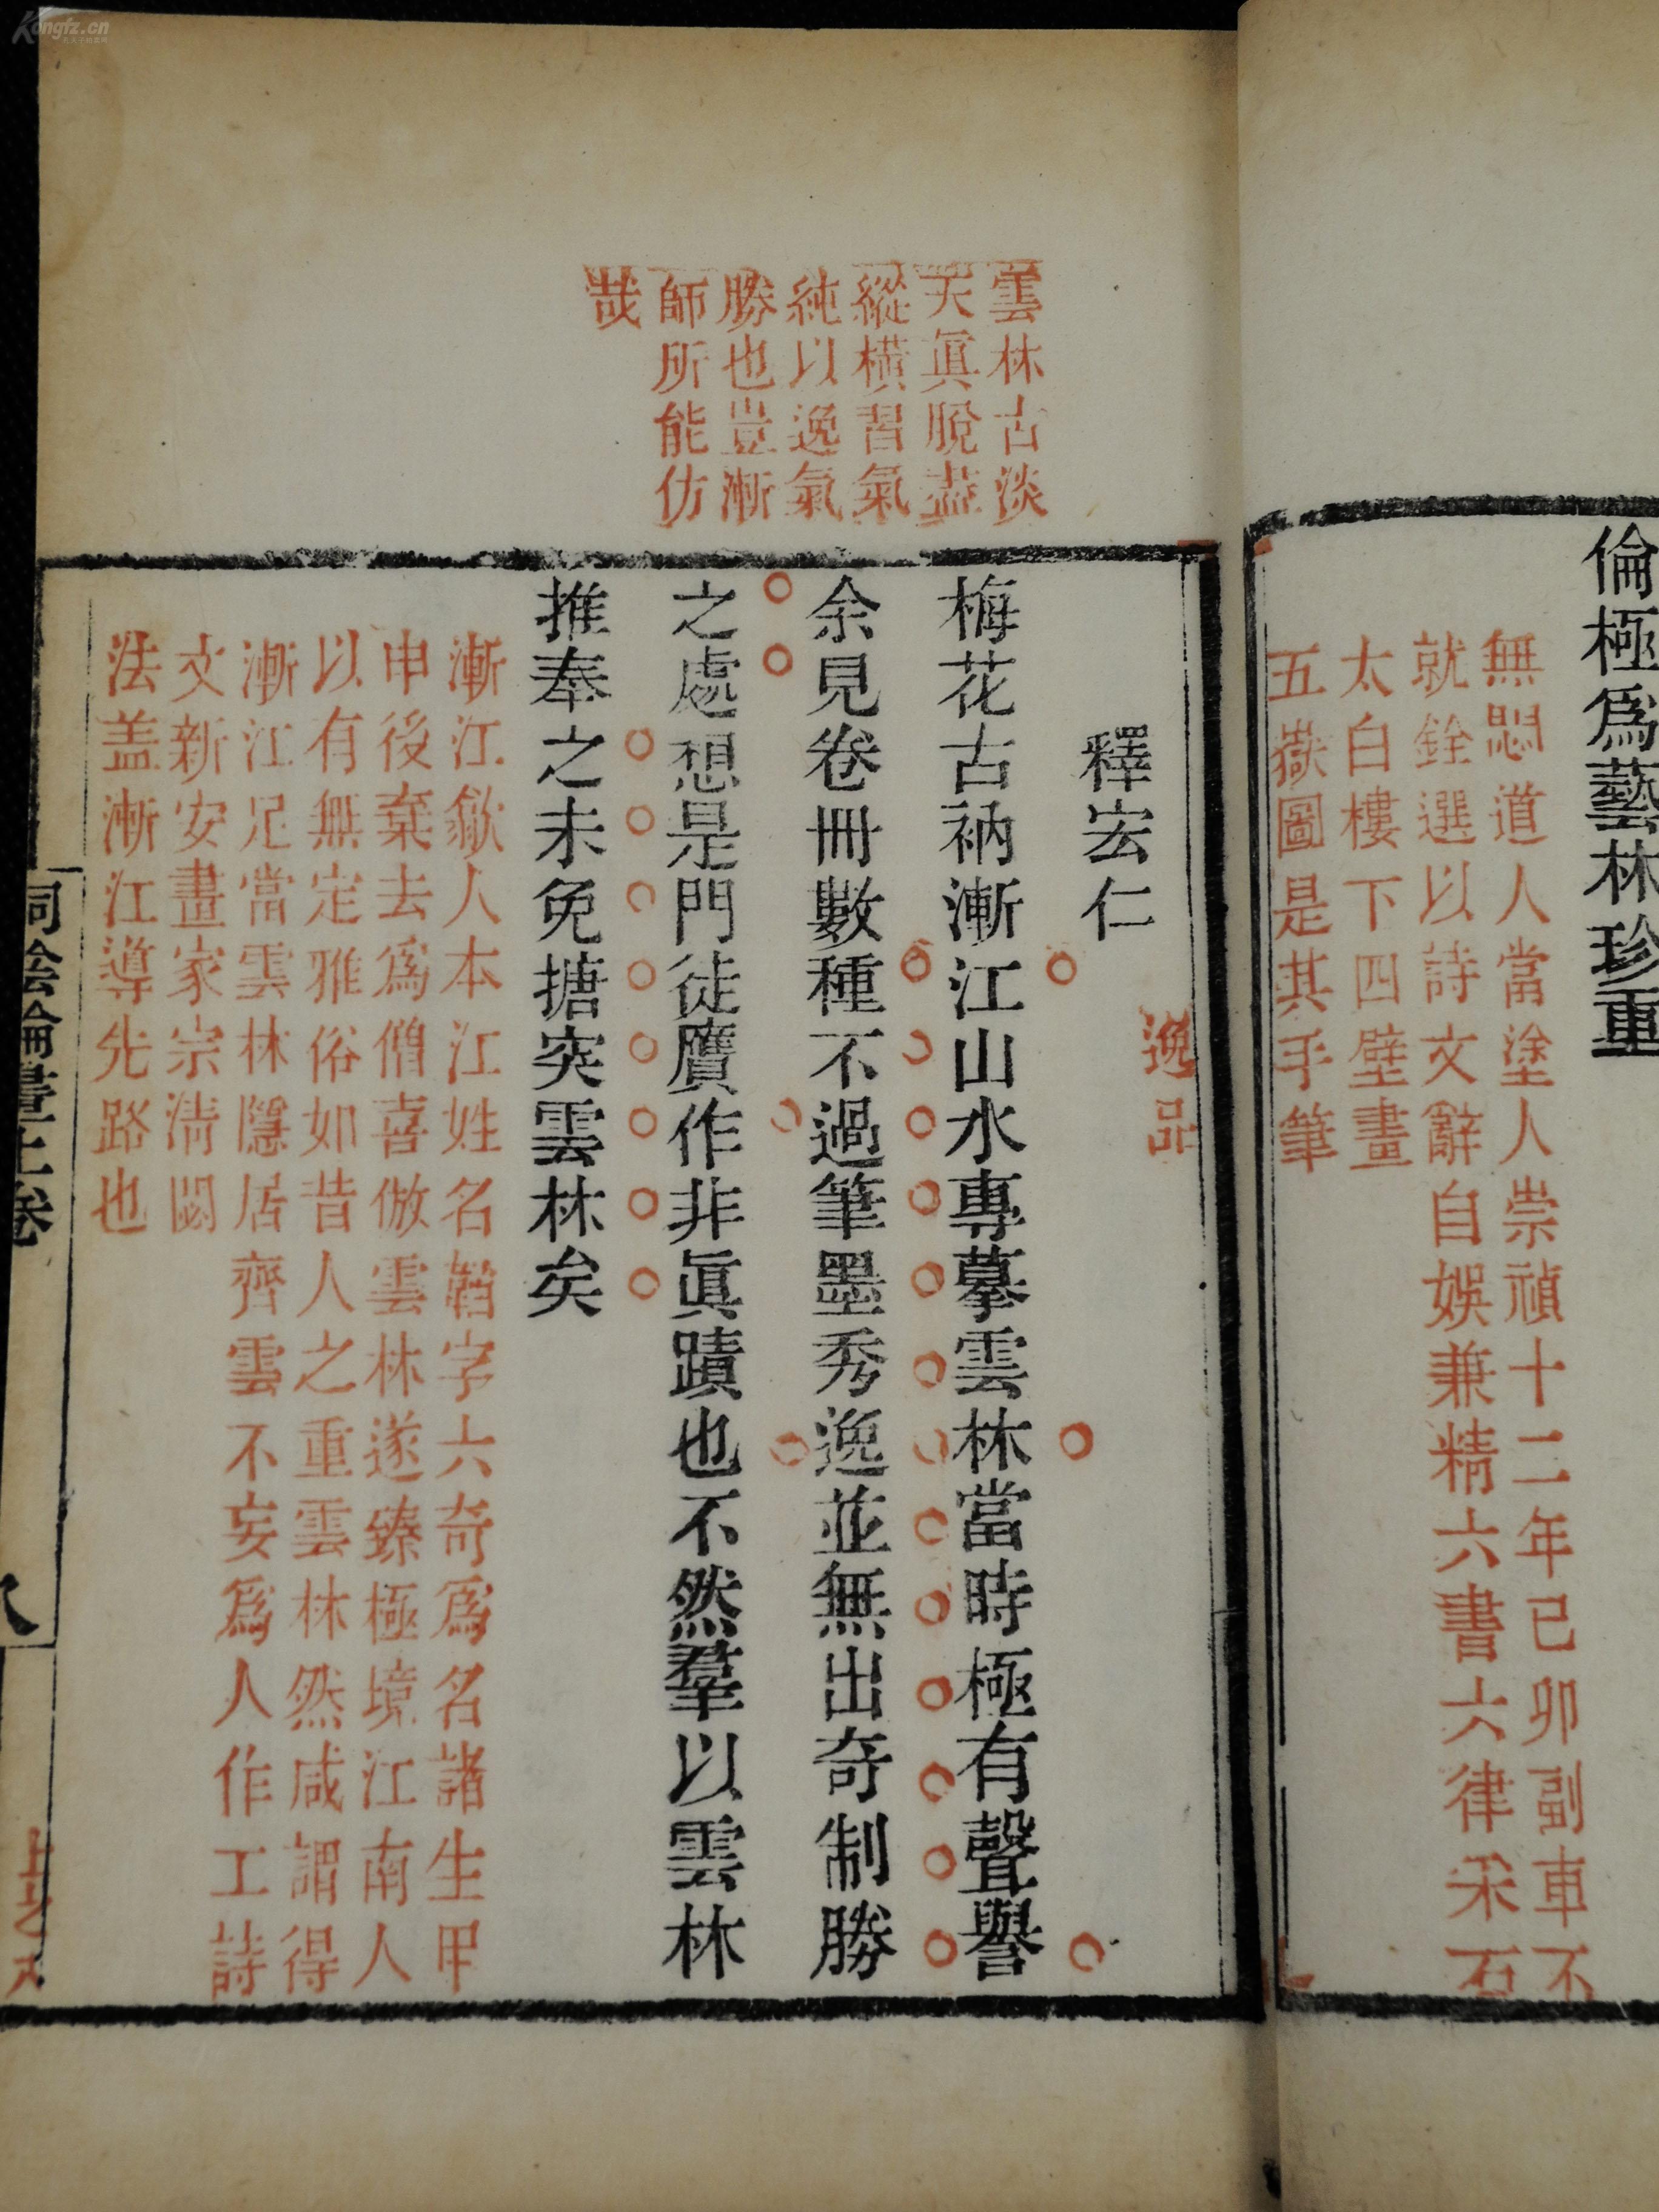 倫極爲藝林珍重
無悶道人當塗人崇禎十二年己卯副車不
就銓選以詩文辭自娛兼精六書六律采石
太白樓下四壁畫
五嶽圖是其手筆
逸品
釋宏仁
梅花古衲漸江山水專摹雲林當時極有聲譽
余見卷冊數種不過筆墨秀逸並無出奇制勝
之處想是門徒贋作非眞蹟也不然羣以雲林
推奉之未免搪突雲林矣
雲林古淡
天眞脫盡
縱橫習氣
純以逸氣
勝也豈漸
師所能仿
哉
漸江歙人本江姓名韜字六奇爲名諸生甲
申後棄去爲僧喜倣雲林遂臻極境江南人
以有無定雅俗如昔人之重雲林然咸謂得
漸江足當雲林隱居齊雲不妄爲人作工詩
文新安畫家宗淸閟
法盖漸江導先路也
桐陰論畫上卷
Kongfz.cn